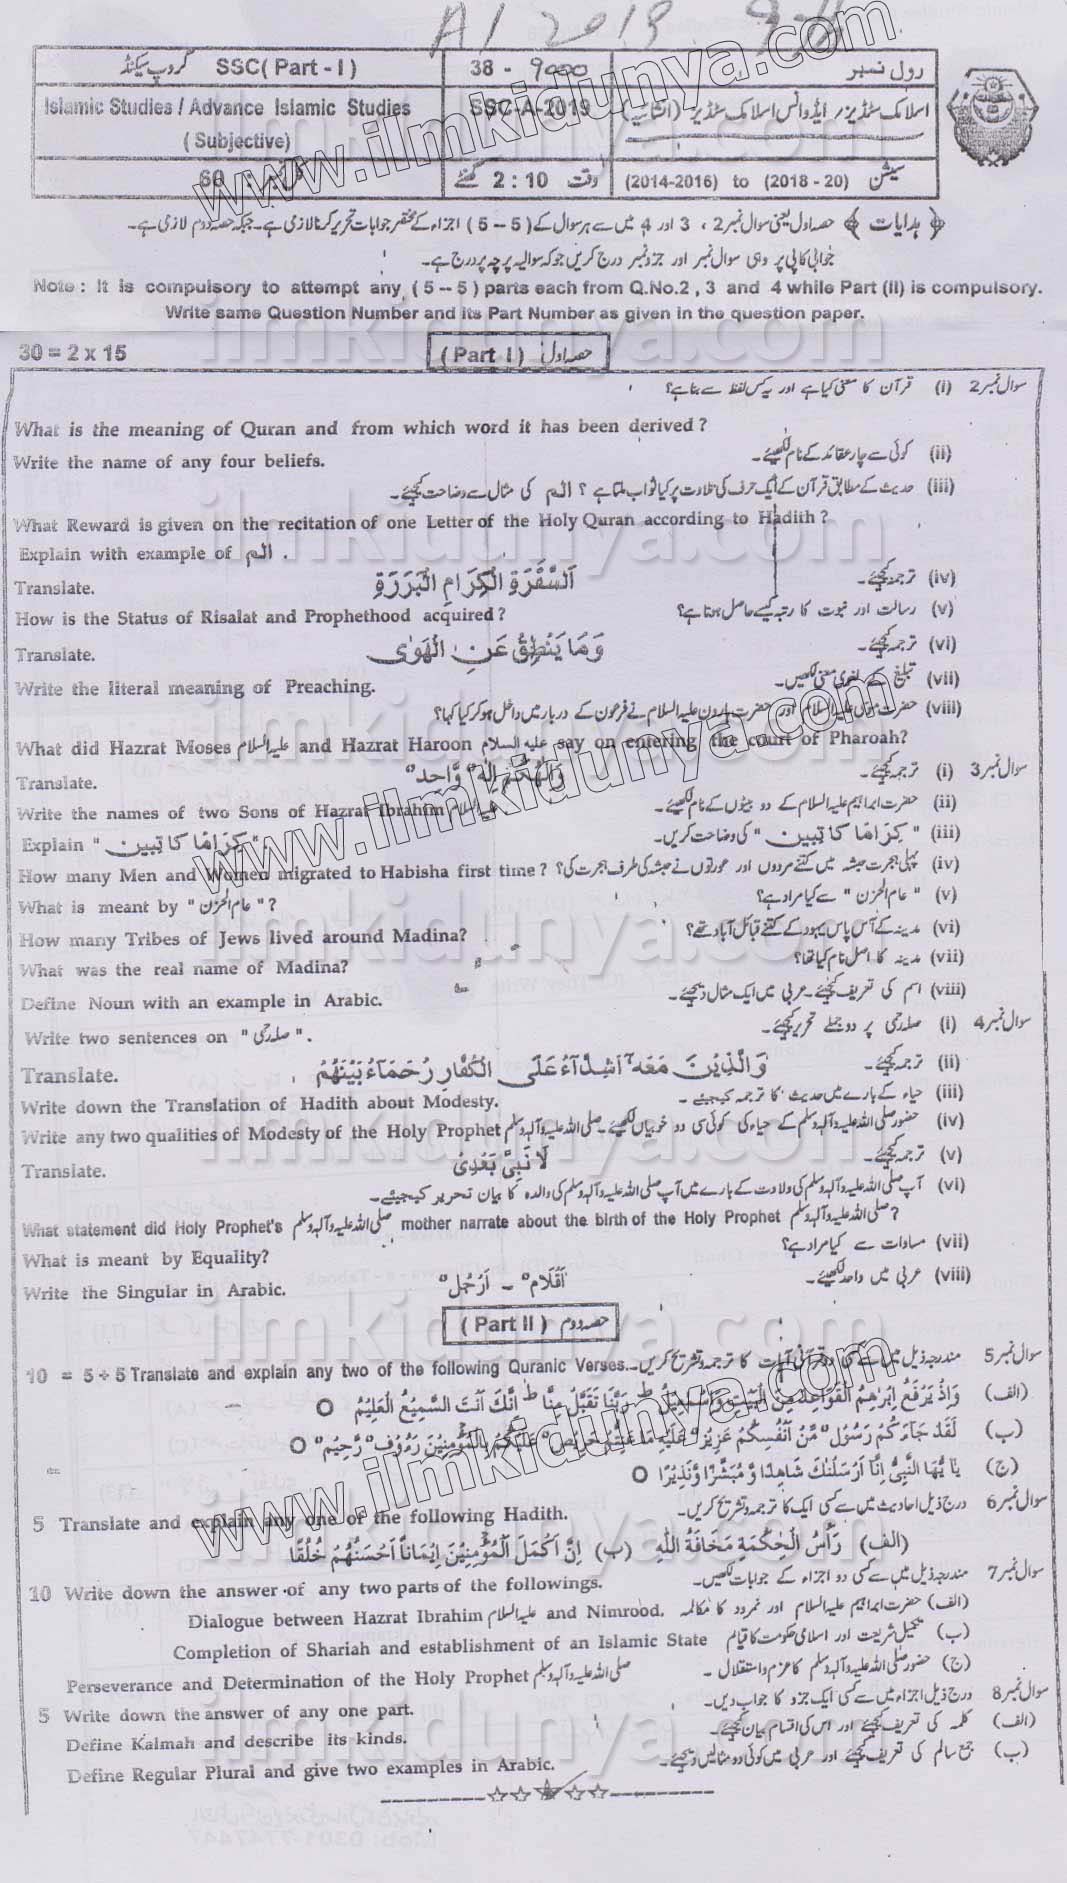 A1 2019
SSC(Part - I) گروپ سیکنڈ
38 - 9000
رول نمبر
Islamic Studies / Advance Islamic Studies
(Subjective)
SSC-A-2019
اسلامک سٹڈیز / ایڈوانس اسلامک سٹڈیز (انشائیہ)
وقت 2 : 10 گھنٹے
سیشن (2014-2016) to (2018 - 20)
﴿ ہدایات ﴾ حصہ اول یعنی سوال نمبر 2 ، 3 اور 4 میں سے ہر سوال کے ( 5 -- 5 ) اجزاء کے مختصر جوابات تحریر کرنا لازمی ہے۔ جبکہ حصہ دوم لازمی ہے۔
جوابی کاپی پر وہی سوال نمبر اور جزو نمبر درج کریں جو کہ سوالیہ پرچہ پر درج ہے۔
Note : It is compulsory to attempt any ( 5 -- 5 ) parts each from Q.No.2 , 3 and 4 while Part (II) is compulsory.
Write same Question Number and its Part Number as given in the question paper.
30 = 2 x 15
( Part I ) حصہ اول
سوال نمبر 2 (i) قرآن کا معنی کیا ہے اور یہ کس لفظ سے بنا ہے؟
What is the meaning of Quran and from which word it has been derived ?
Write the name of any four beliefs.
(ii) کوئی سے چار عقائد کے نام لکھیئے۔
(iii) حدیث کے مطابق قرآن کے ایک حرف کی تلاوت پر کیا ثواب ملتا ہے ؟ الم کی مثال سے وضاحت کیجئے۔
What Reward is given on the recitation of one Letter of the Holy Quran according to Hadith ?
Explain with example of الم .
Translate. اَلسَّفَرَةِ الْكِرَامِ الْبَرَرَةِ (iv) ترجمہ کیجئے۔
How is the Status of Risalat and Prophethood acquired ? (v) رسالت اور نبوت کا رتبہ کیسے حاصل ہوتا ہے؟
Translate. وَمَا يَنْطِقُ عَنِ الْهَوٰى (vi) ترجمہ کیجئے۔
Write the literal meaning of Preaching. (vii) تبلیغ کے لغوی معنی لکھیں۔
(viii) حضرت موسٰی علیہ السلام اور حضرت ہارون علیہ السلام نے فرعون کے دربار میں داخل ہو کر کیا کہا؟
What did Hazrat Moses علیہ السلام and Hazrat Haroon علیہ السلام say on entering the court of Pharoah?
Translate. وَاِلٰهُكُمْ اِلٰهٌ وَّاحِدٌ سوال نمبر 3 (i) ترجمہ کیجئے۔
Write the names of two Sons of Hazrat Ibrahim علیہ السلام (ii) حضرت ابراہیم علیہ السلام کے دو بیٹوں کے نام لکھیئے۔
Explain " كِرَامًا كَاتِبِين " (iii) " كِرَامًا كَاتِبِين " کی وضاحت کریں۔
How many Men and Women migrated to Habisha first time ? (iv) پہلی ہجرت حبشہ میں کتنے مردوں اور عورتوں نے حبشہ کی طرف ہجرت کی؟
What is meant by " عام الحزن " ? (v) " عام الحزن " سے کیا مراد ہے؟
How many Tribes of Jews lived around Madina? (vi) مدینہ کے آس پاس یہود کے کتنے قبائل آباد تھے؟
What was the real name of Madina? (vii) مدینہ کا اصل نام کیا تھا؟
Define Noun with an example in Arabic. (viii) اسم کی تعریف کیجئے۔ عربی میں ایک مثال دیجئے۔
Write two sentences on " صلہ رحمی ". سوال نمبر 4 (i) صلہ رحمی پر دو جملے تحریر کیجئے۔
Translate. وَالَّذِيْنَ مَعَهٗ اَشِدَّآءُ عَلَى الْكُفَّارِ رُحَمَآءُ بَيْنَهُمْ (ii) ترجمہ کیجئے۔
Write down the Translation of Hadith about Modesty. (iii) حیاء کے بارے میں حدیث کا ترجمہ کیجئے۔
Write any two qualities of Modesty of the Holy Prophet صلی اللہ علیہ وآلہ وسلم (iv) حضور صلی اللہ علیہ وآلہ وسلم کے حیاء کی کوئی سی دو خوبیاں لکھیئے۔
Translate. لَا نَبِيَّ بَعْدِيْ (v) ترجمہ کیجئے۔
(vi) آپ صلی اللہ علیہ وآلہ وسلم کی ولادت کے بارے میں آپ صلی اللہ علیہ وآلہ وسلم کی والدہ کا بیان تحریر کیجیئے۔
What statement did Holy Prophet's صلی اللہ علیہ وآلہ وسلم mother narrate about the birth of the Holy Prophet صلی اللہ علیہ وآلہ وسلم ?
What is meant by Equality? (vii) مساوات سے کیا مراد ہے؟
Write the Singular in Arabic. اَقْلَامٌ - اَرْجُلٌ (viii) عربی میں واحد لکھیئے۔
( Part II ) حصہ دوم
10 = 5 + 5 Translate and explain any two of the following Quranic Verses. سوال نمبر 5 مندرجہ ذیل میں سے کسی دو قرآنی آیات کا ترجمہ و تشریح کریں۔
(الف) وَاِذْ يَرْفَعُ اِبْرٰهِمُ الْقَوَاعِدَ مِنَ الْبَيْتِ وَاِسْمٰعِيْلُ ؕ رَبَّنَا تَقَبَّلْ مِنَّا ؕ اِنَّكَ اَنْتَ السَّمِيْعُ الْعَلِيْمُ ○
(ب) لَقَدْ جَآءَكُمْ رَسُوْلٌ مِّنْ اَنْفُسِكُمْ عَزِيْزٌ عَلَيْهِ مَا عَنِتُّمْ حَرِيْصٌ عَلَيْكُمْ بِالْمُؤْمِنِيْنَ رَءُوْفٌ رَّحِيْمٌ ○
(ج) يٰاَيُّهَا النَّبِيُّ اِنَّآ اَرْسَلْنٰكَ شَاهِدًا وَّ مُبَشِّرًا وَّنَذِيْرًا ○
5 Translate and explain any one of the following Hadith. سوال نمبر 6 درج ذیل احادیث میں سے کسی ایک کا ترجمہ و تشریح کریں۔
(الف) رَأْسُ الْحِكْمَةِ مَخَافَةُ اللهِ (ب) اِنَّ اَكْمَلَ الْمُؤْمِنِيْنَ اِيْمَانًا اَحْسَنُهُمْ خُلُقًا
10 Write down the answer of any two parts of the followings. سوال نمبر 7 مندرجہ ذیل میں سے کسی دو اجزاء کے جوابات لکھیں۔
Dialogue between Hazrat Ibrahim علیہ السلام and Nimrood. (الف) حضرت ابراہیم علیہ السلام اور نمرود کا مکالمہ
Completion of Shariah and establishment of an Islamic State (ب) تکمیل شریعت اور اسلامی حکومت کا قیام
Perseverance and Determination of the Holy Prophet صلی اللہ علیہ وآلہ وسلم (ج) حضور صلی اللہ علیہ وآلہ وسلم کا عزم و استقلال۔
5 Write down the answer of any one part. سوال نمبر 8 درج ذیل اجزاء میں سے کسی ایک جزو کا جواب دیں۔
Define Kalmah and describe its kinds. (الف) کلمہ کی تعریف کیجئے اور اس کی اقسام بیان کیجئے۔
Define Regular Plural and give two examples in Arabic. (ب) جمع سالم کی تعریف کیجئے اور عربی میں کوئی دو مثالیں دیجئے۔
www.ilmkidunya.com
www.ilmkidunya.com
www.ilmkidunya.com
ilmkidunya.com
ilmkidunya.com
ilmkidunya.com
ilmkidunya.com
ilmkidunya.com
ilmkidunya.com
ilmkidunya.com
ilmkidunya.com